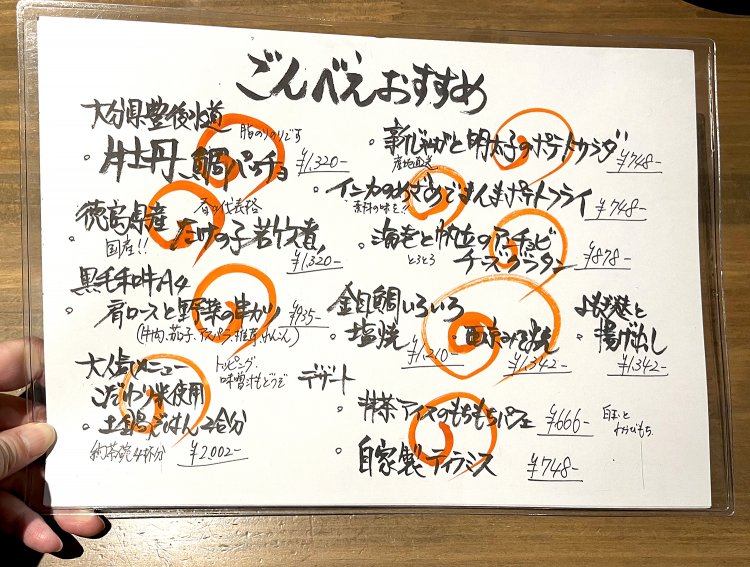 ごんべえおすすめ
大分県豊後水道
脂のりのりです
・牡丹鯛カルパッチョ ¥1,320-
徳島県産
春の代表格
国産!!
・たけの子若竹煮 ¥1,320-
黒毛和牛A4
・肩ロースと野菜の串カツ ¥935-
(牛肉、茄子、アスパラ、椎茸、れんこん)
大人気メニュー
こだわり米使用
トッピング
味噌汁もどうぞ
・土鍋ごはん 2合分
約茶碗4杯分 ¥2,002-
・新じゃがと明太子のポテトサラダ ¥748-
産地直送
・インカのめざめでまんまポテトフライ ¥748-
素材の味を!!
・海老と帆立のアンチョビ
とろとろ
チーズグラタン ¥878-
金目鯛いろいろ
・塩焼 ¥1,210-
・西京みそ焼 ¥1,342-
よもぎ麩と
・揚げ出し ¥1,342-
デザート
・抹茶アイスのもちもちパフェ ¥666-
白玉と
わらびもち
・自家製ティラミス ¥748-